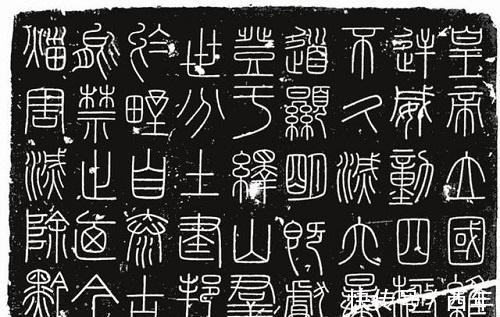 皇帝立國維
逆威動四極
不久滅六暴
道顯明既獻
登于繹山群
世分土建邦
於野自泰古
能禁止迺今
災害滅除黔
快传号/